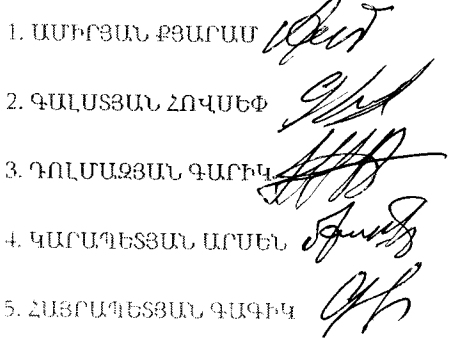 1. ԱՄԻՐՅԱՆ ՔՅԱՐԱՄ
2. ԳԱԼՍՏՅԱՆ ՀՈՎՍԵՓ
3. ԴՈԼՄԱԶՅԱՆ ԳԱՐԻԿ
4. ԿԱՐԱՊԵՏՅԱՆ ԱՐՍԵՆ
5. ՀԱՅՐԱՊԵՏՅԱՆ ԳԱԳԻԿ